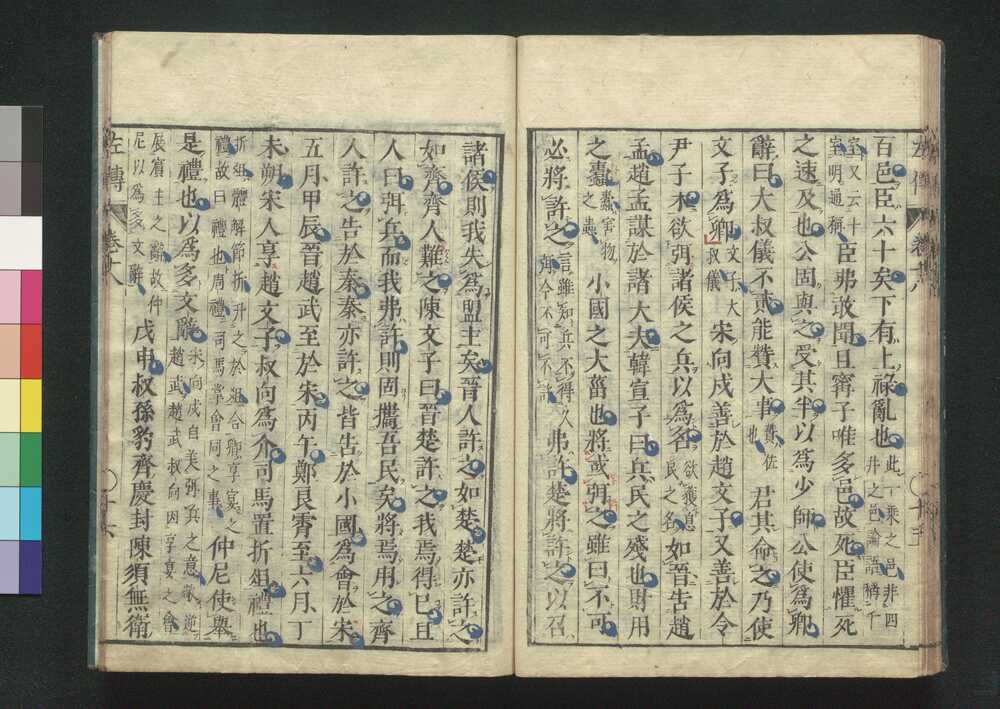 百邑臣六十矣下有上祿亂也此一乘之邑非四井之邑論語稱千
室又云十室明通稱臣弗敢聞且甯子唯多邑故死臣懼死
之速及也公固與之受其半以爲少師公使爲卿
辭曰大叔儀不貳能贊大事贊佐也君其命之乃使
文子爲卿文子大叔儀宋向戌善於趙文子又善於令
尹子木欲弭諸侯之兵以爲名欲獲息民之名如晉告趙
孟趙孟謀於諸大夫韓宣子曰兵民之殘也財用
之蠹蠹害物之蟲小國之大菑也將或弭之雖曰不可
必將許之言雖知兵不得久弭今不可不許弗許楚將許之以召
諸侯則我失爲盟主矣晉人許之如楚楚亦許之
如齊齊人難之陳文子曰晉楚許之我焉得已且
人曰弭兵而我弗許則固攜吾民矣將焉用之齊
人許之告於秦秦亦許之皆告於小國爲會於宋
五月甲辰晉趙武至於宋丙午鄭良霄至六月丁
未朔宋人享趙文子叔向爲介司馬置折俎禮也
折俎體解節折升之於俎合卿享宴之禮故曰禮也周禮司馬掌會同之事仲尼使舉
是禮也以爲多文辭宋向戌自美弭兵之意敬逆趙武趙武叔向因享宴之會
展賓主之辭故仲尼以爲多文辭戊申叔孫豹齊慶封陳須無衛
左傳
卷十八